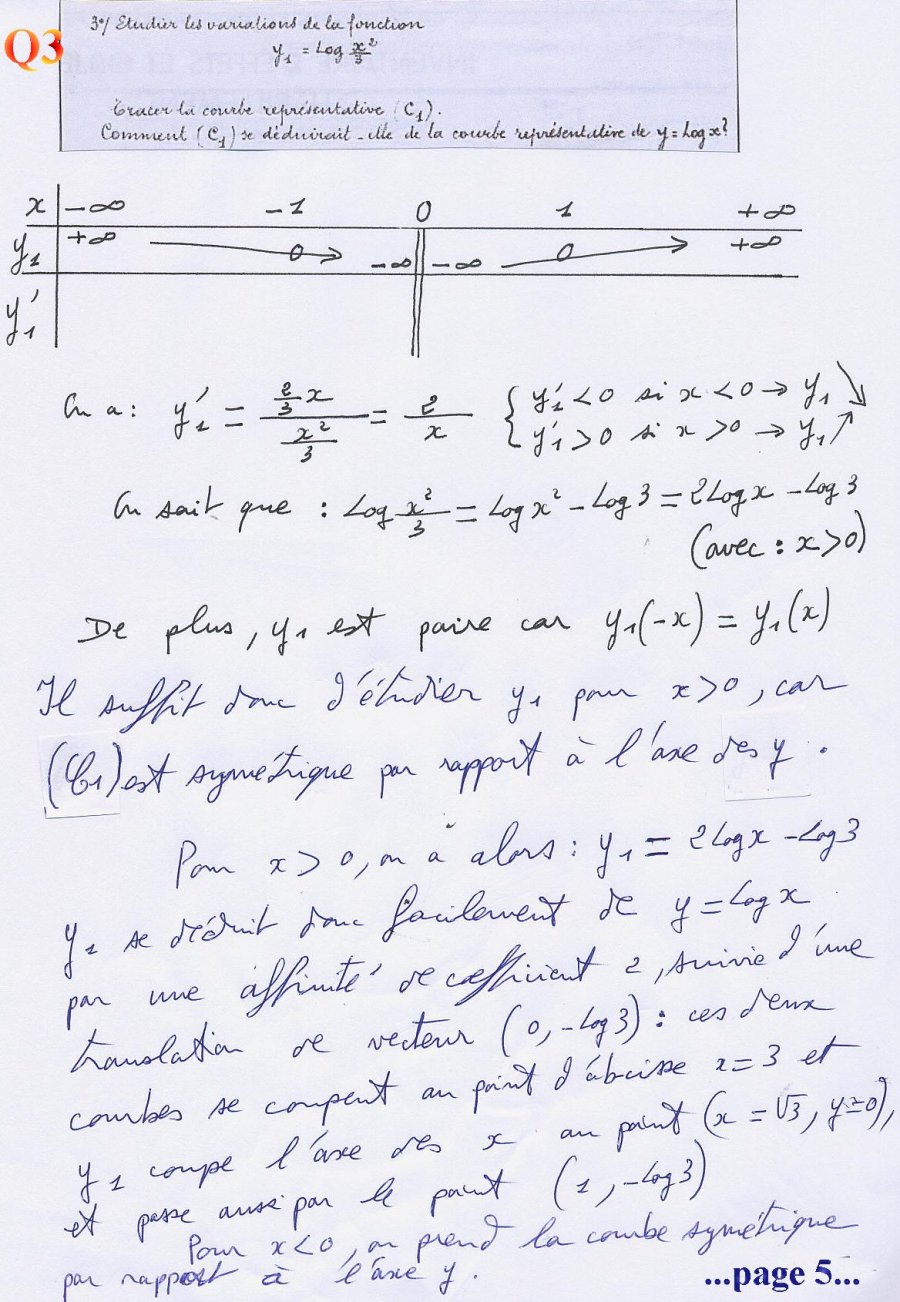 Q3
3°/ Etudier les variations de la fonction
y₁ = Log x²/3
Tracer la courbe représentative (C₁).
Comment (C₁) se déduirait-elle de la courbe représentative de y = Log x?
x | -∞ -1 0 1 +∞
y₁ | +∞ 0 -∞ || -∞ 0 +∞
y₁'
On a : y₁' = (2/3 x)/(x²/3) = 2/x { y₁' < 0 si x < 0 → y₁ ↘
y₁' > 0 si x > 0 → y₁ ↗
On sait que : Log x²/3 = Log x² - Log 3 = 2 Log x - Log 3
(avec : x > 0)
De plus, y₁ est paire car y₁(-x) = y₁(x)
Il suffit donc d'étudier y₁ pour x > 0, car
(C₁) est symétrique par rapport à l'axe des y.
Pour x > 0, on a alors : y₁ = 2 Log x - Log 3
y₁ se déduit donc facilement de y = Log x
par une affinité de coefficient 2, suivie d'une
translation de vecteur (0, -Log 3) : ces deux
courbes se coupent au point d'abcisse x = 3 et
y₁ coupe l'axe des x au point (x = √3, y = 0),
et passe aussi par le point (1, -Log 3)
Pour x < 0, on prend la courbe symétrique
par rapport à l'axe y.
...page 5...